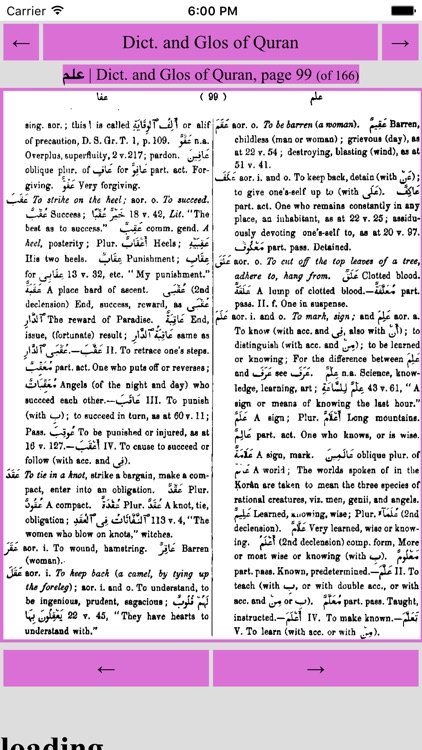 Carrier 6:00 PM
← Dict. and Glos of Quran →
علم | Dict. and Glos of Quran, page 99 (of 166)
عفا ( 99 ) علم
sing. aor.; this ا is called أَلِفُ ٱلْوِقَايَةِ or alif
of precaution, D. S. Gr. T. 1, p. 109. عَفْوٌ n.a.
Overplus, superfluity, 2 v. 217; pardon. عَافِينَ
oblique plur. of عَافٍ for عَافِوٌ part. act. For-
giving. عَفُوٌّ Very forgiving.
عَقَبَ To strike on the heel; aor. o. To succeed.
عُقْبٌ Success; خَيْرٌ عُقْبًا 18 v. 42, Lit. "The
best as to success." عَقِبٌ comm. gend. A
heel, posterity; Plur. أَعْقَابٌ Heels; عَقِبَيْهِ
His two heels. عِقَابٌ Punishment; عِقَابِ
for عِقَابِي 13 v. 32, etc. "My punishment."
عَقَبَةٌ A place hard of ascent. عُقْبَى (2nd
declension) End, success, reward, as عُقْبَى
ٱلدَّارِ The reward of Paradise. عَاقِبَةٌ End,
issue, (fortunate) result; عَاقِبَةُ ٱلدَّارِ same as
عُقْبَى ٱلدَّارِ.—عَقَّبَ II. To retrace one's steps.
مُعَقِّبٌ part. act. One who puts off or reverses;
مُعَقِّبَاتٌ Angels (of the night and day) who
succeed each other.—عَاقَبَ III. To punish
(with بِ); to succeed in turn, as at 60 v. 11;
Pass. عُوقِبَ To be punished or injured, as at
16 v. 127.—أَعْقَبَ IV. To cause to succeed or
follow (with acc. and فِي)
عَقَدَ To tie in a knot, strike a bargain, make a com-
pact, enter into an obligation. عَقْدٌ Plur.
عُقُودٌ A compact. عُقْدَةٌ Plur. عُقَدٌ A knot, tie,
obligation; ٱلنَّفَّاثَاتِ فِي ٱلْعُقَدِ 113 v. 4, "The
women who blow on knots," witches.
عَقَرَ aor. i. To wound, hamstring. عَاقِرٌ Barren
(woman).
عَقَلَ aor. i. To keep back (a camel, by tying up
the foreleg); aor. i. and o. To understand, to
be ingenious, prudent, sagacious; لَهُمْ قُلُوبٌ
يَعْقِلُونَ بِهَا 22 v. 45, "They have hearts to
understand with."
عَقَمَ aor. o. To be barren (a woman). عَقِيمٌ Barren,
childless (man or woman); grievous (day), as
at 22 v. 54; destroying, blasting (wind), as at
51 v. 41.
عَكَفَ aor. i. and o. To keep back, detain (with عَنْ);
to give one's self up to (with عَلَى). عَاكِفٌ
part. act. One who remains constantly in any
place, an inhabitant, as at 22 v. 25; assidu-
ously devoting one's-self to, as at 20 v. 97.
مَعْكُوفٌ part. pass. Detained.
عَلَقَ aor. o. To cut off the top leaves of a tree,
adhere to, hang from. عَلَقٌ Clotted blood.
عَلَقَةٌ A lump of clotted blood.—مُعَلَّقَةٌ part.
pass. II. f. One in suspense.
عَلَمَ aor. i. and o. To mark, sign; and عَلِمَ aor. a.
To know (with acc. and فِي, also with أَنَّ); to
distinguish (with acc. and مِنْ); to be learned
or knowing; For the difference between عَلِمَ
and عَرَفَ see عَرَفَ. عِلْمٌ n.a. Science, know-
ledge, learning, art; عِلْمٌ لِلسَّاعَةِ 43 v. 61, "A
sign or means of knowing the last hour."
عَلَمٌ A sign; Plur. أَعْلَامٌ Long mountains.
عَالِمٌ part. act. One who knows, or is wise.
عَلَامَةٌ A sign, mark. عَالَمِينَ oblique plur. of
عَالَمٌ A world; The worlds spoken of in the
Ḳorân are taken to mean the three species of
rational creatures, viz. men, genii, and angels.
عَلِيمٌ Learned, knowing, wise; Plur. عُلَمَاءُ (2nd
declension). عَلَّامٌ Very learned, wise or know-
ing. أَعْلَمُ (2nd declension) comp. form, More
or most wise or knowing (with بِ). مَعْلُومٌ
part. pass. Known, predetermined.—عَلَّمَ II. To
teach (with بِ, or with double acc., or with
acc. and مِنْ or بِ). مُعَلَّمٌ part. pass. Taught,
instructed.—أَعْلَمَ IV. To make known.—تَعَلَّمَ
V. To learn (with acc. or with مِنْ).
← →
loading